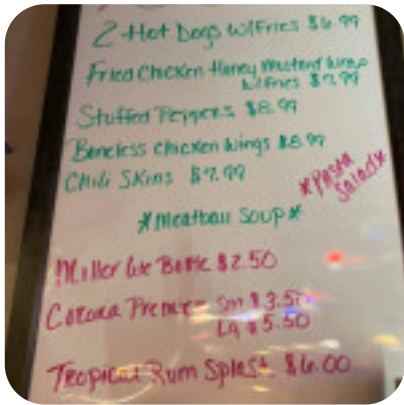 2-Hot Dogs W/Fries $6.99
Fried Chicken Honey Mustard Wrap
W/Fries $7.99
Stuffed Peppers $8.99
Boneless Chicken Wings $8.99
Chili Skins $7.99
*Pasta
Salad*
*Meatball Soup*
Miller Lite Bottle $2.50
Corona Premier Sm $3.50
Lg $5.50
Tropical Rum Splash $6.00